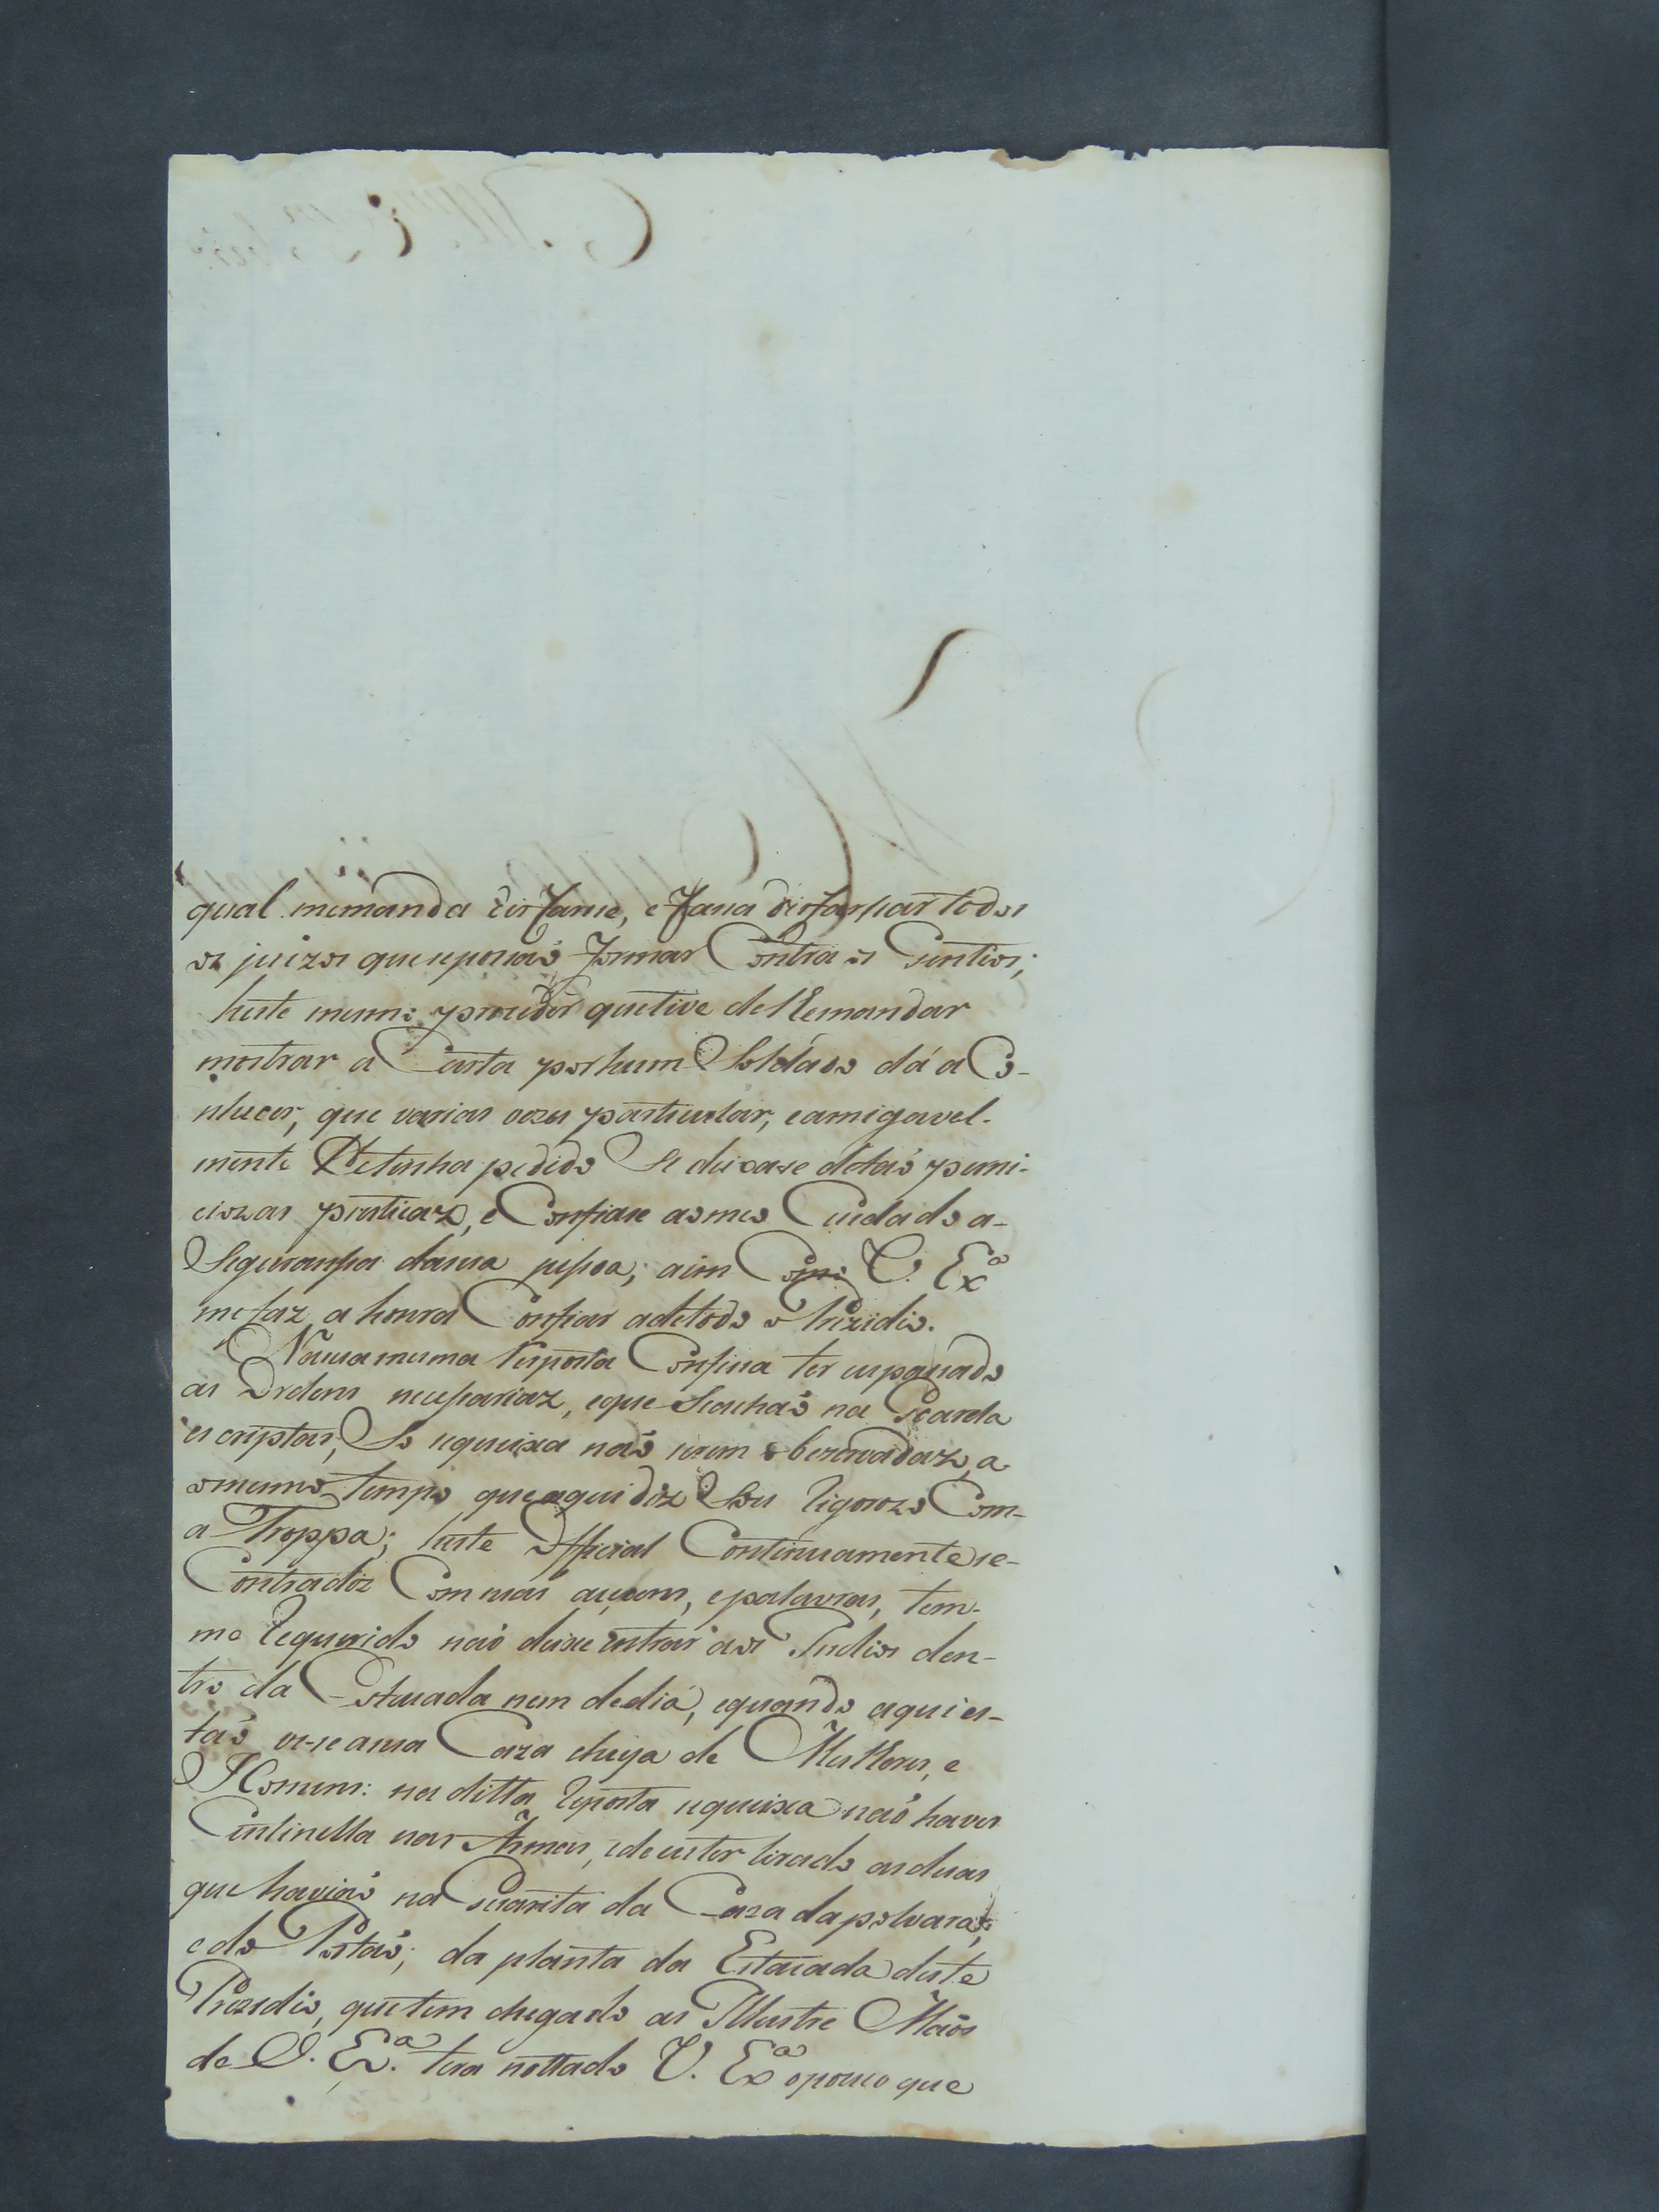 qual memanda disfarse, efassa disfarsar todos
os juizos que seposaõ formar Contra os Gentios;
heste mesmo proceder quetive de lhemandar
mostrar a Carta por hum Soldado dá a Co-
nhecer, que varias vezes particular, eamigavel-
mente lhetinha pedido Se deixase detaõ perni-
ciozas praticaz, e Confiase aomeo Cuidado a-
Seguransa dasua pesoa; asim Como V. Exª
mefaz a honra Confiar adetodo o Prezidio.
Nasua mesma resposta Confesa ter espasado
as Ordens necesariaz, eque Seachaõ na Goarda
escriptas, So sequeixa naõ serem obcervadaz, a
omesmo tempo que aqui diz Ser rigorozo Com-
a Troppa; heste Official Continuamente se-
Contradiz Com suas açoens, epalavras, tem-
me requerido naõ deixe entrar aos Indios den-
tro da Estacada nem dedia, equando aqui es-
taõ ve-se asua Caza cheya de Mulheres, e
Homens: na ditta reposta sequeixa naõ haver
Centinella nas Armas, ede eu ter tirado as duas
que haviaõ na Guarita da Caza dapolvara,
edo Portaõ; da planta da Estacada deste
Prezidio, quetem chegado as Illustre Maõs
de V. Exª. tera nottado V. Exª opouco que